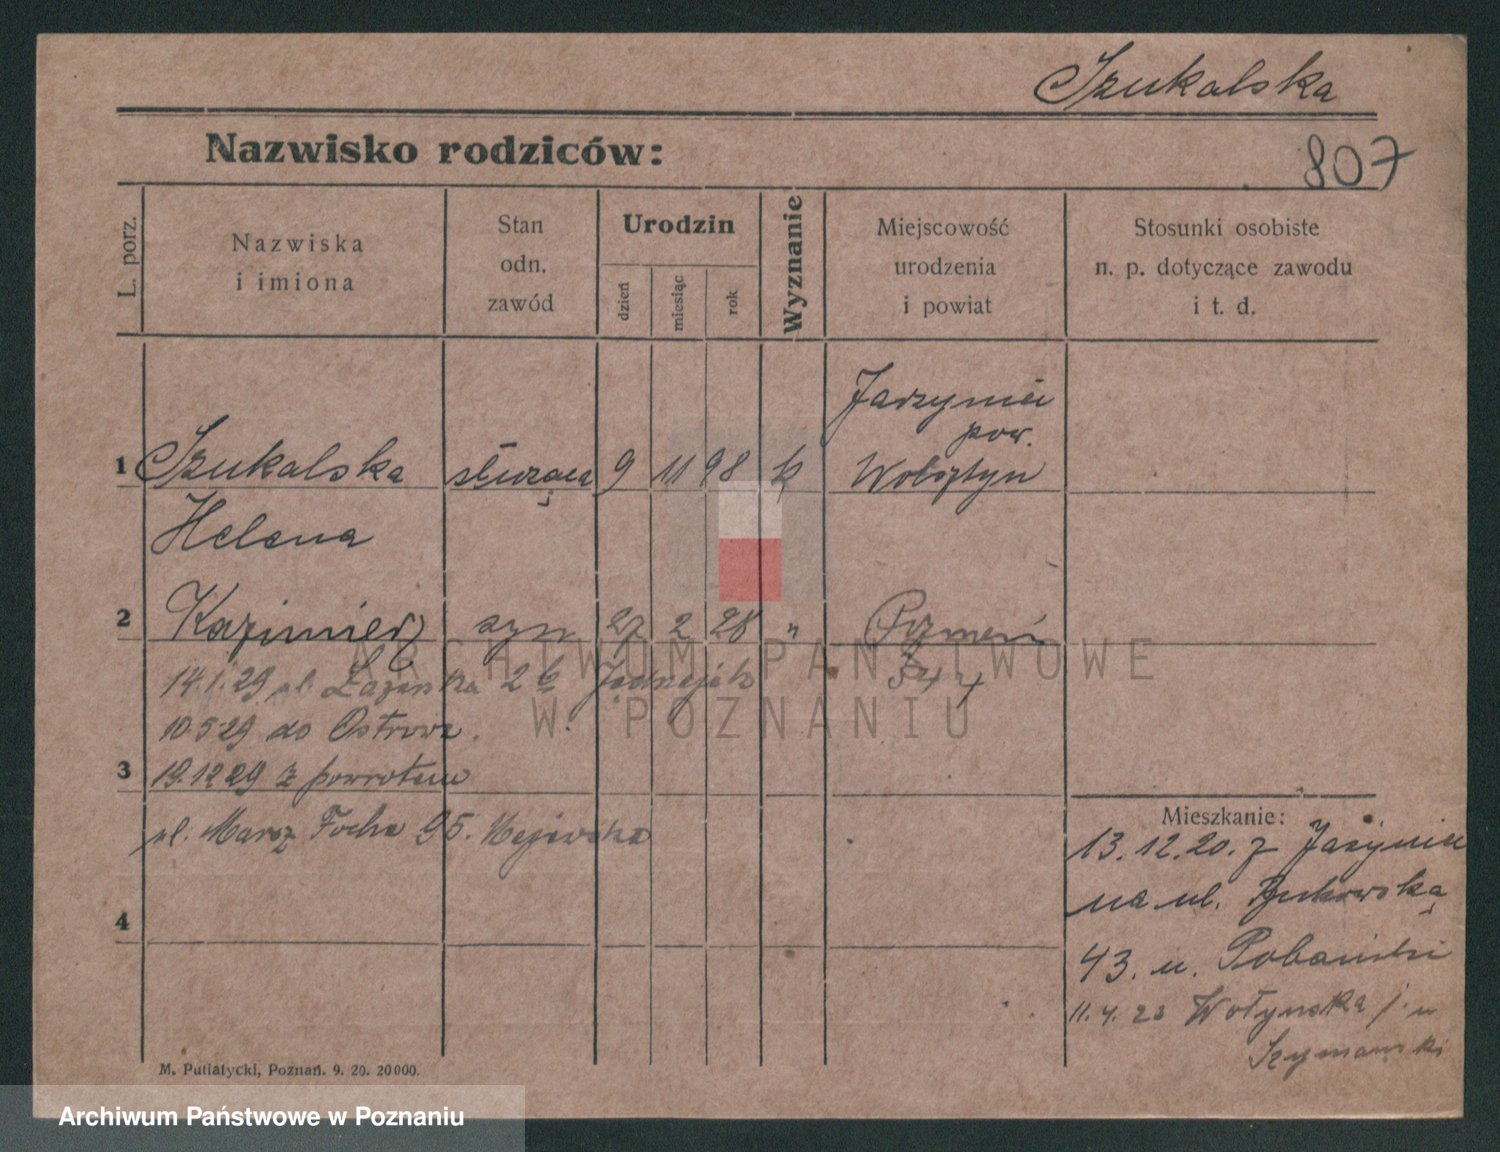 Szukalska
Nazwisko rodziców:
807
L. porz.
Nazwiska
i imiona
Stan
odn.
zawód
Urodzin
dzień
miesiąc
rok
Wyznanie
Miejscowość
urodzenia
i powiat
Stosunki osobiste
n. p. dotyczące zawodu
i t. d.
Jarzyniec
pow.
1 Szukalska służąca 9 11 98 k Wolsztyn
Helena
2 Kazimierz syn 27 2 28 " Poznań
14.1.29 ul. Łazarska 26
10.5.29 do Ostrowa.
3 19.12.29 z powrotem
ul. Marsz Focha 95. Majewska
4
Mieszkanie:
13.12.20. z
na ul. Bukowską
43. u.
11.4.23 Wołyńska u
Szymański
M. Putiatycki, Poznań. 9. 20. 20000.
ARCHIWUM PAŃSTWOWE
W POZNANIU
Archiwum Państwowe w Poznaniu